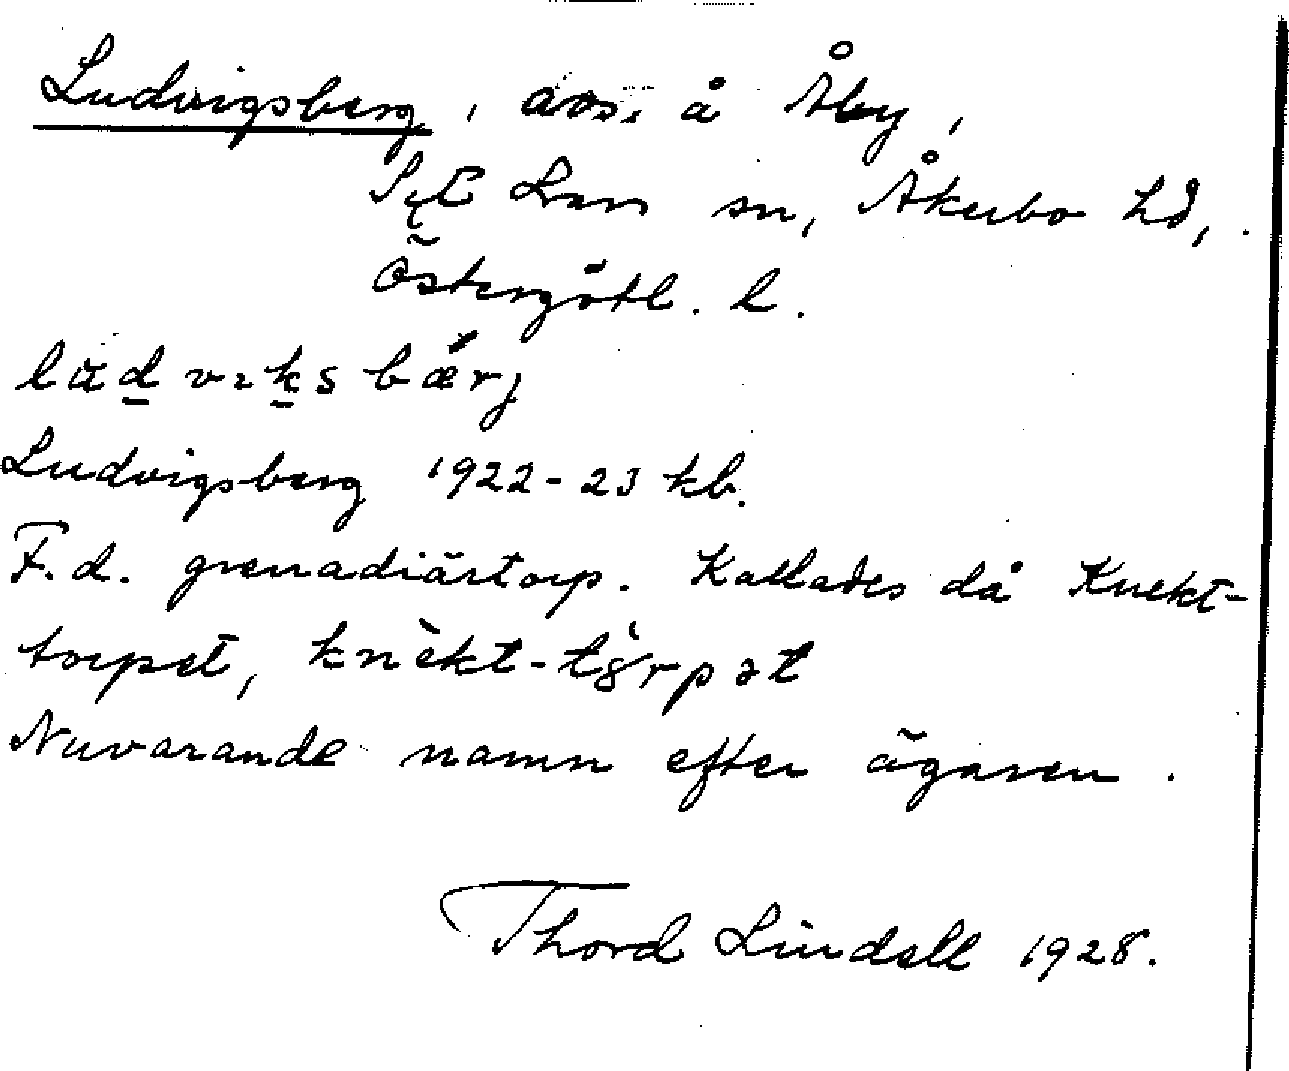 Ludwigsberg, avs. å Åby,
S:t Lars sn, Åkerbo hd,
Östergötl. l.
Ludvigsberg 1922-23 kb.
F.d. grenadiärtorp. Kallades då Knekt-
torpet, knèkt-tòrpət
Nuvarande namn efter ägaren.
Thord Lindell 1928.